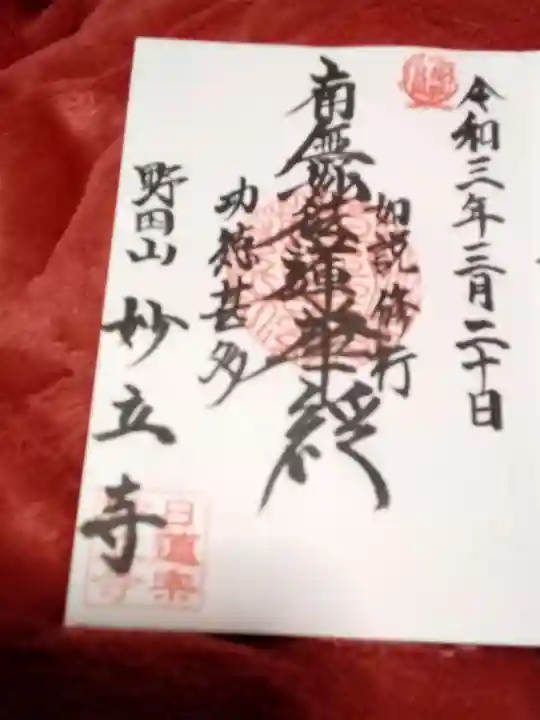 令和三年三月二十日
如説修行
南無妙法蓮華経
功徳甚多
野田山 妙立寺
日蓮宗